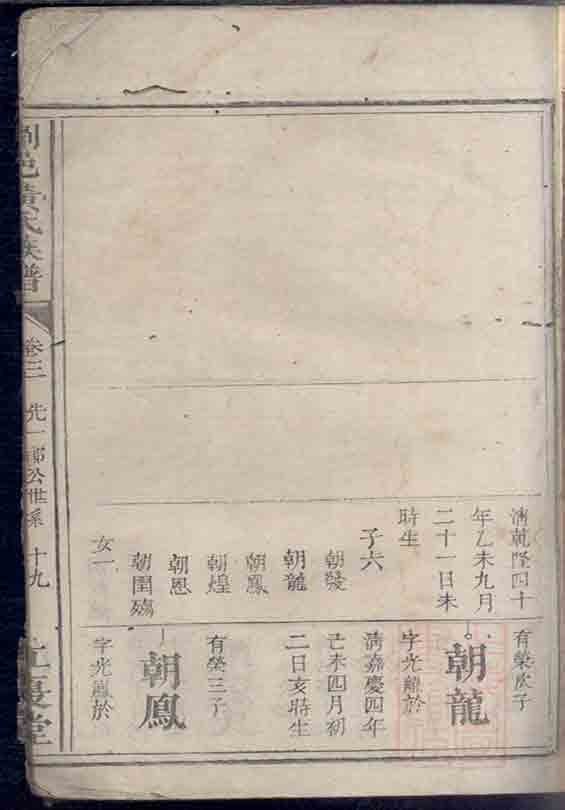 清乾隆四十
年乙未九月
二十一日未
時生
子六
朝陵
朝龍
朝鳳
朝煌
朝恩
朝閏殤
女一
有榮次子
朝龍
字光麟於
清嘉慶四年
己未四月初
二日亥時生
有榮三子
朝鳳
字光鳳於
邑黃氏族譜
卷三
先一郎公世系
十九